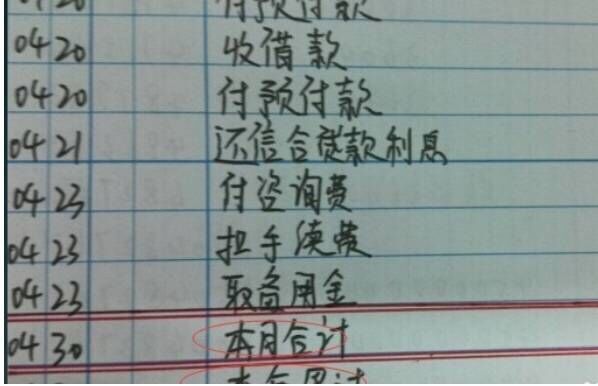 04 20 付预付款
04 20 收借款
04 20 付预付款
04 21 还信合贷款利息
04 23 付咨询费
04 23 扣手续费
04 23 取备用金
04 30 本月合计
本年累计